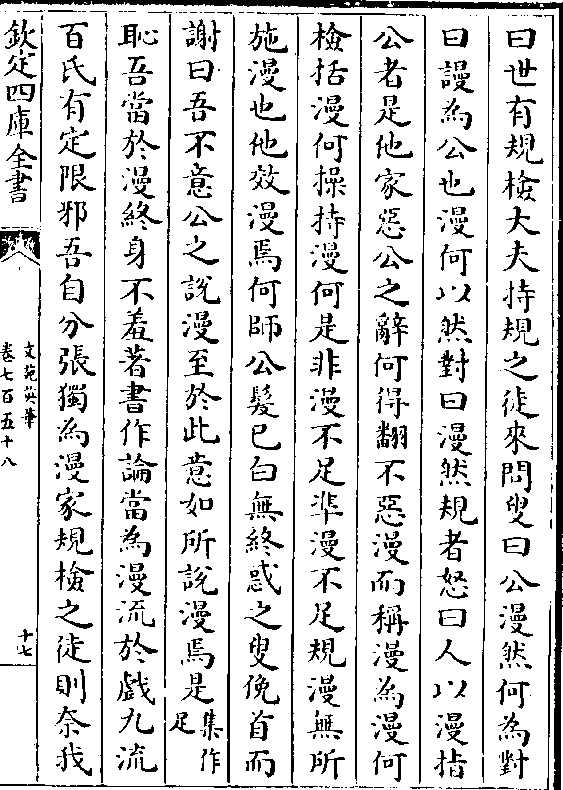 曰世有規檢大夫持規之徒來問叟曰公漫然何為對
曰謾為公也漫何以然對曰漫然規者怒曰人以漫指
公者是他家惡公之辭何得翻不惡漫而稱漫為漫何
檢括漫何操持漫何是非漫不足準漫不足規漫無所
施漫也他效漫焉何師公髮已白無終惑之叟俛首而
謝曰吾不意公之說漫至於此意如所說漫焉是集作足
恥吾當於漫終身不羞著書作論當為漫流於戲九流
百氏有定限邪吾自分張獨為漫家規檢之徒則奈我
欽定四庫全書
文苑英華
卷七百五十八
十七